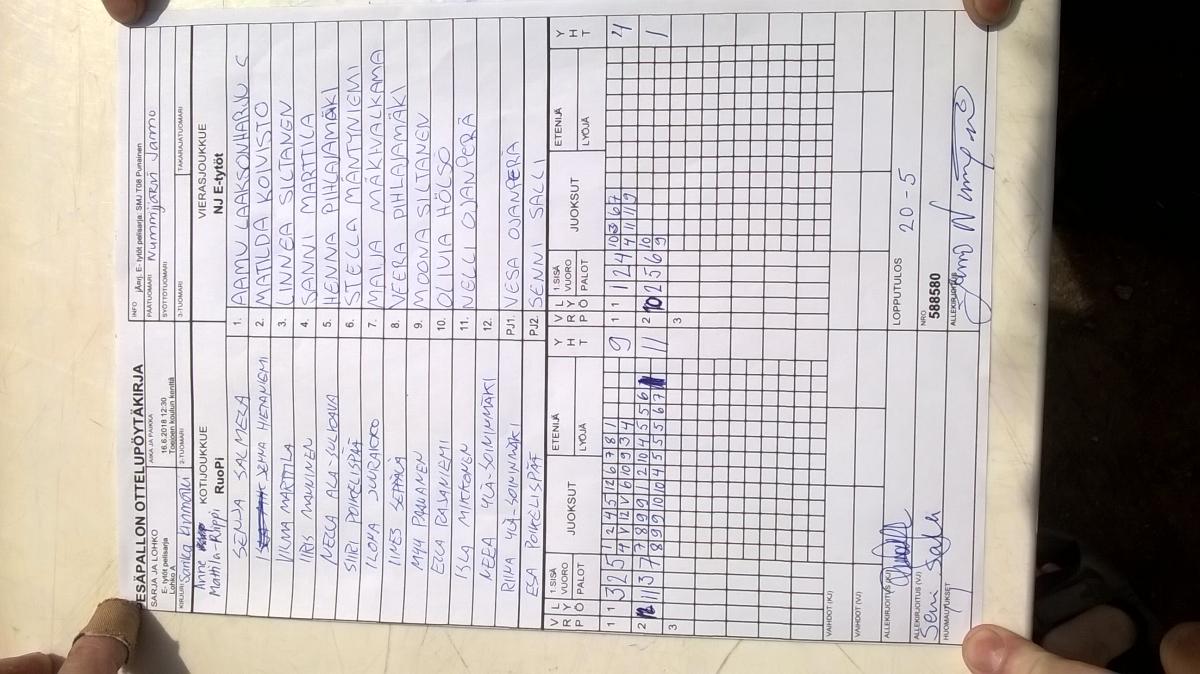 PESÄPALLON OTTELUPÖYTÄKIRJA
SARJA JA LOHKO
E- tytöt pelisarja
Lohko A
AIKA JA PAIKKA
16.6.2018 12:30
Toejoen koulun kenttä
INFO
jÄnj. E- tytöt pelisarja. SMJ T08 Punainen
PÄÄTUOMARI Nummijärvi Jarmo
SYÖTTÖTUOMARI
KIRJURI
2-TUOMARI
3-TUOMARI
TAKARAJATUOMARI
KOTIJOUKKUE
RuoPi
Anne
Mattila-Riippi
VIERASJOUKKUE
NJ E-tytöt
SENJA SALMELA
1. AAMU LAAKSONHARJU C
JENNA HIETANIEMI
2. MATILDA KOIVISTO
VILMA MARTTILA
3. LINNEA SILTANEN
IIRIS MANNINEN
4. SANNI MARTTILA
NELLA ALA-SULKAVA
5. HENNA PIHLAJAMÄKI
SIIRI POIKELISPÄÄ
6. STELLA MÄNTYNIEMI
ILONA JUURAKKO
7. MAIJA MÄKIVALKAMA
IINES SEPPÄLÄ
8. VEERA PIHLAJAMÄKI
MYY PAANANEN
9. MOONA SILTANEN
EELA PAJANIEMI
10. OLIVIA HÖLSO
ISLA MIKKONEN
11. NELLI OJANPERÄ
NELLA YLÄ-SOININMÄKI
12.
RIIKA YLÄ-SOININMÄKI
PJ1. VESA OJANPERÄ
ESA POIKELISPÄÄ
PJ2. SENNI SALLI
V R P
L Y Ö
1.SISÄ VUORO
PALOT
JUOKSUT
ETENIJÄ
LYÖJÄ
Y H T
V R P
L Y Ö
1.SISÄ VUORO
PALOT
JUOKSUT
ETENIJÄ
LYÖJÄ
Y H T
1 1 3 2 5 1 2 4 5 12 6 7 8 1 9
4 V 12 V 6 10 9 3 4
1 1 1 2 4 10 3 6 7 4
4 11 11 9
2 11 3 7 7 8 9 9 1 2 10 4 5 5 6 11
8 9 9 10 10 4 5 5 5 6 7
2 10 2 5 6 10 1
9
3
3
VAIHDOT (KJ)
VAIHDOT (VJ)
ALLEKIRJOITUS (KJ)
LOPPUTULOS 20 - 5
ALLEKIRJOITUS (VJ)
Senni Salli
NRO
588580
HUOMAUTUKSET
ALLEKIRJOITUS
Jarmo Nummijärvi